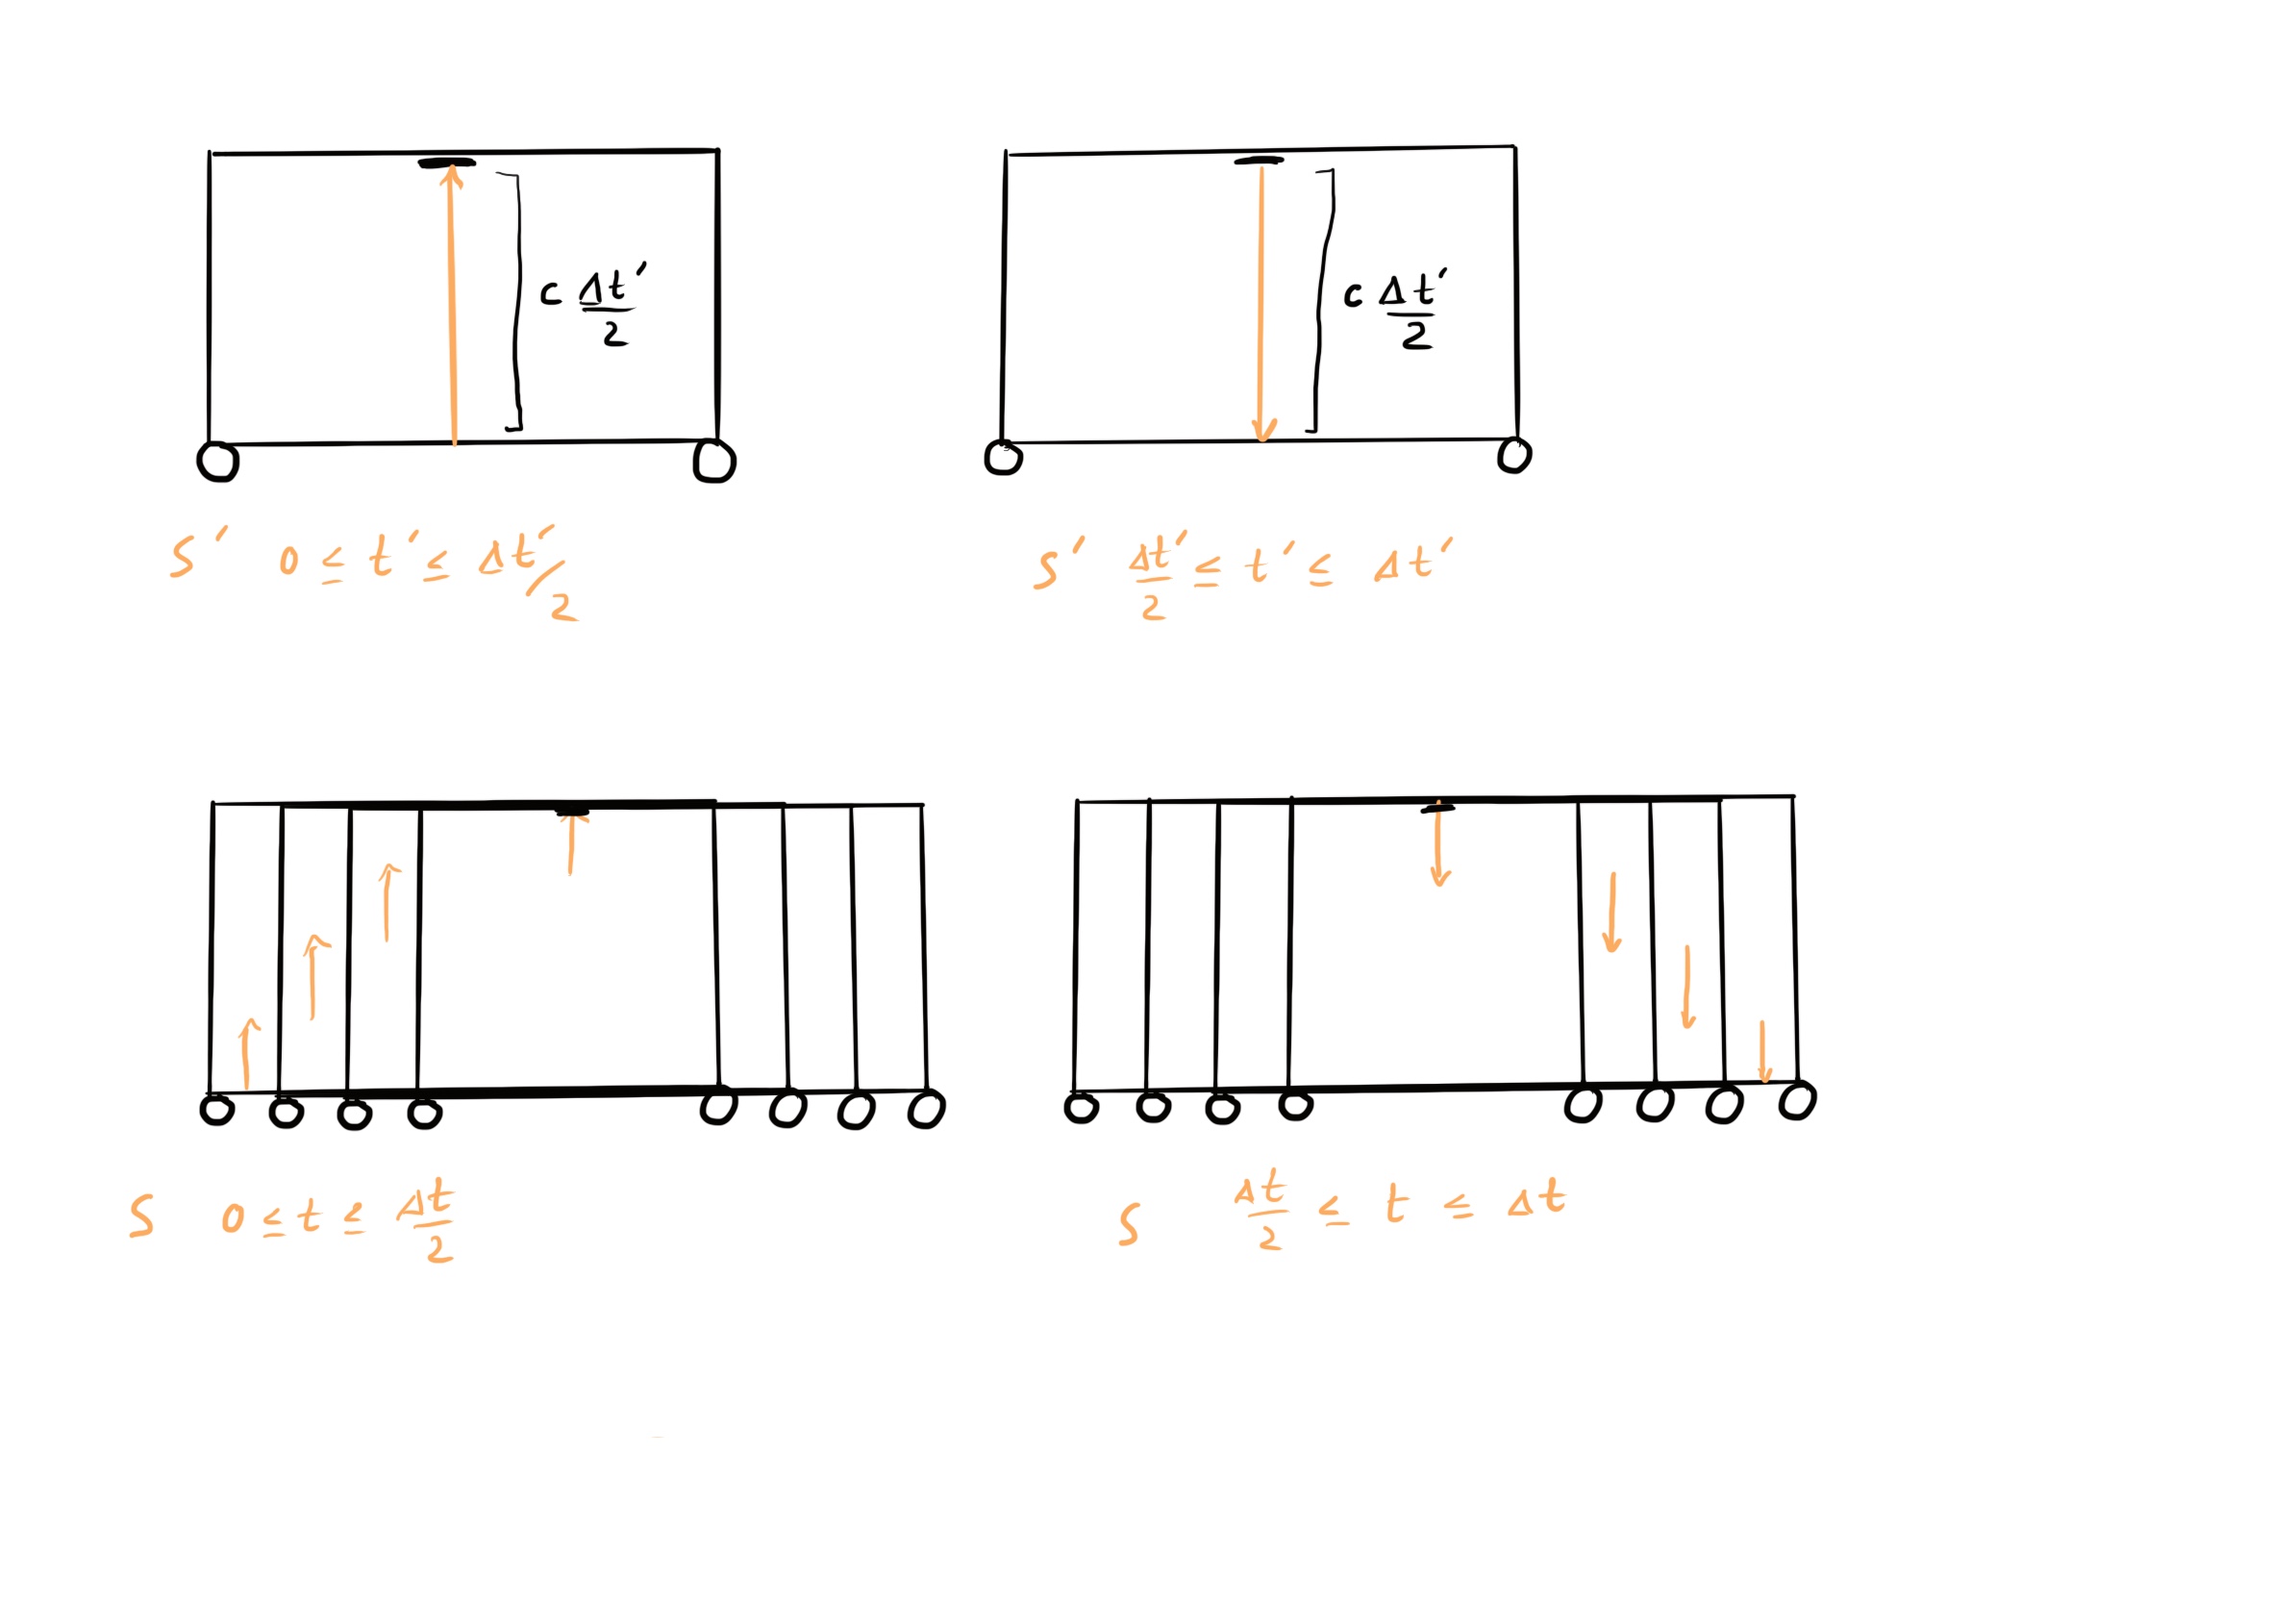 c Δt′/2
c Δt′/2
S′ 0 ≤ t′ ≤ Δt′/2
S′ Δt′/2 ≤ t′ ≤ Δt′
S 0 ≤ t ≤ Δt/2
S Δt/2 ≤ t ≤ Δt